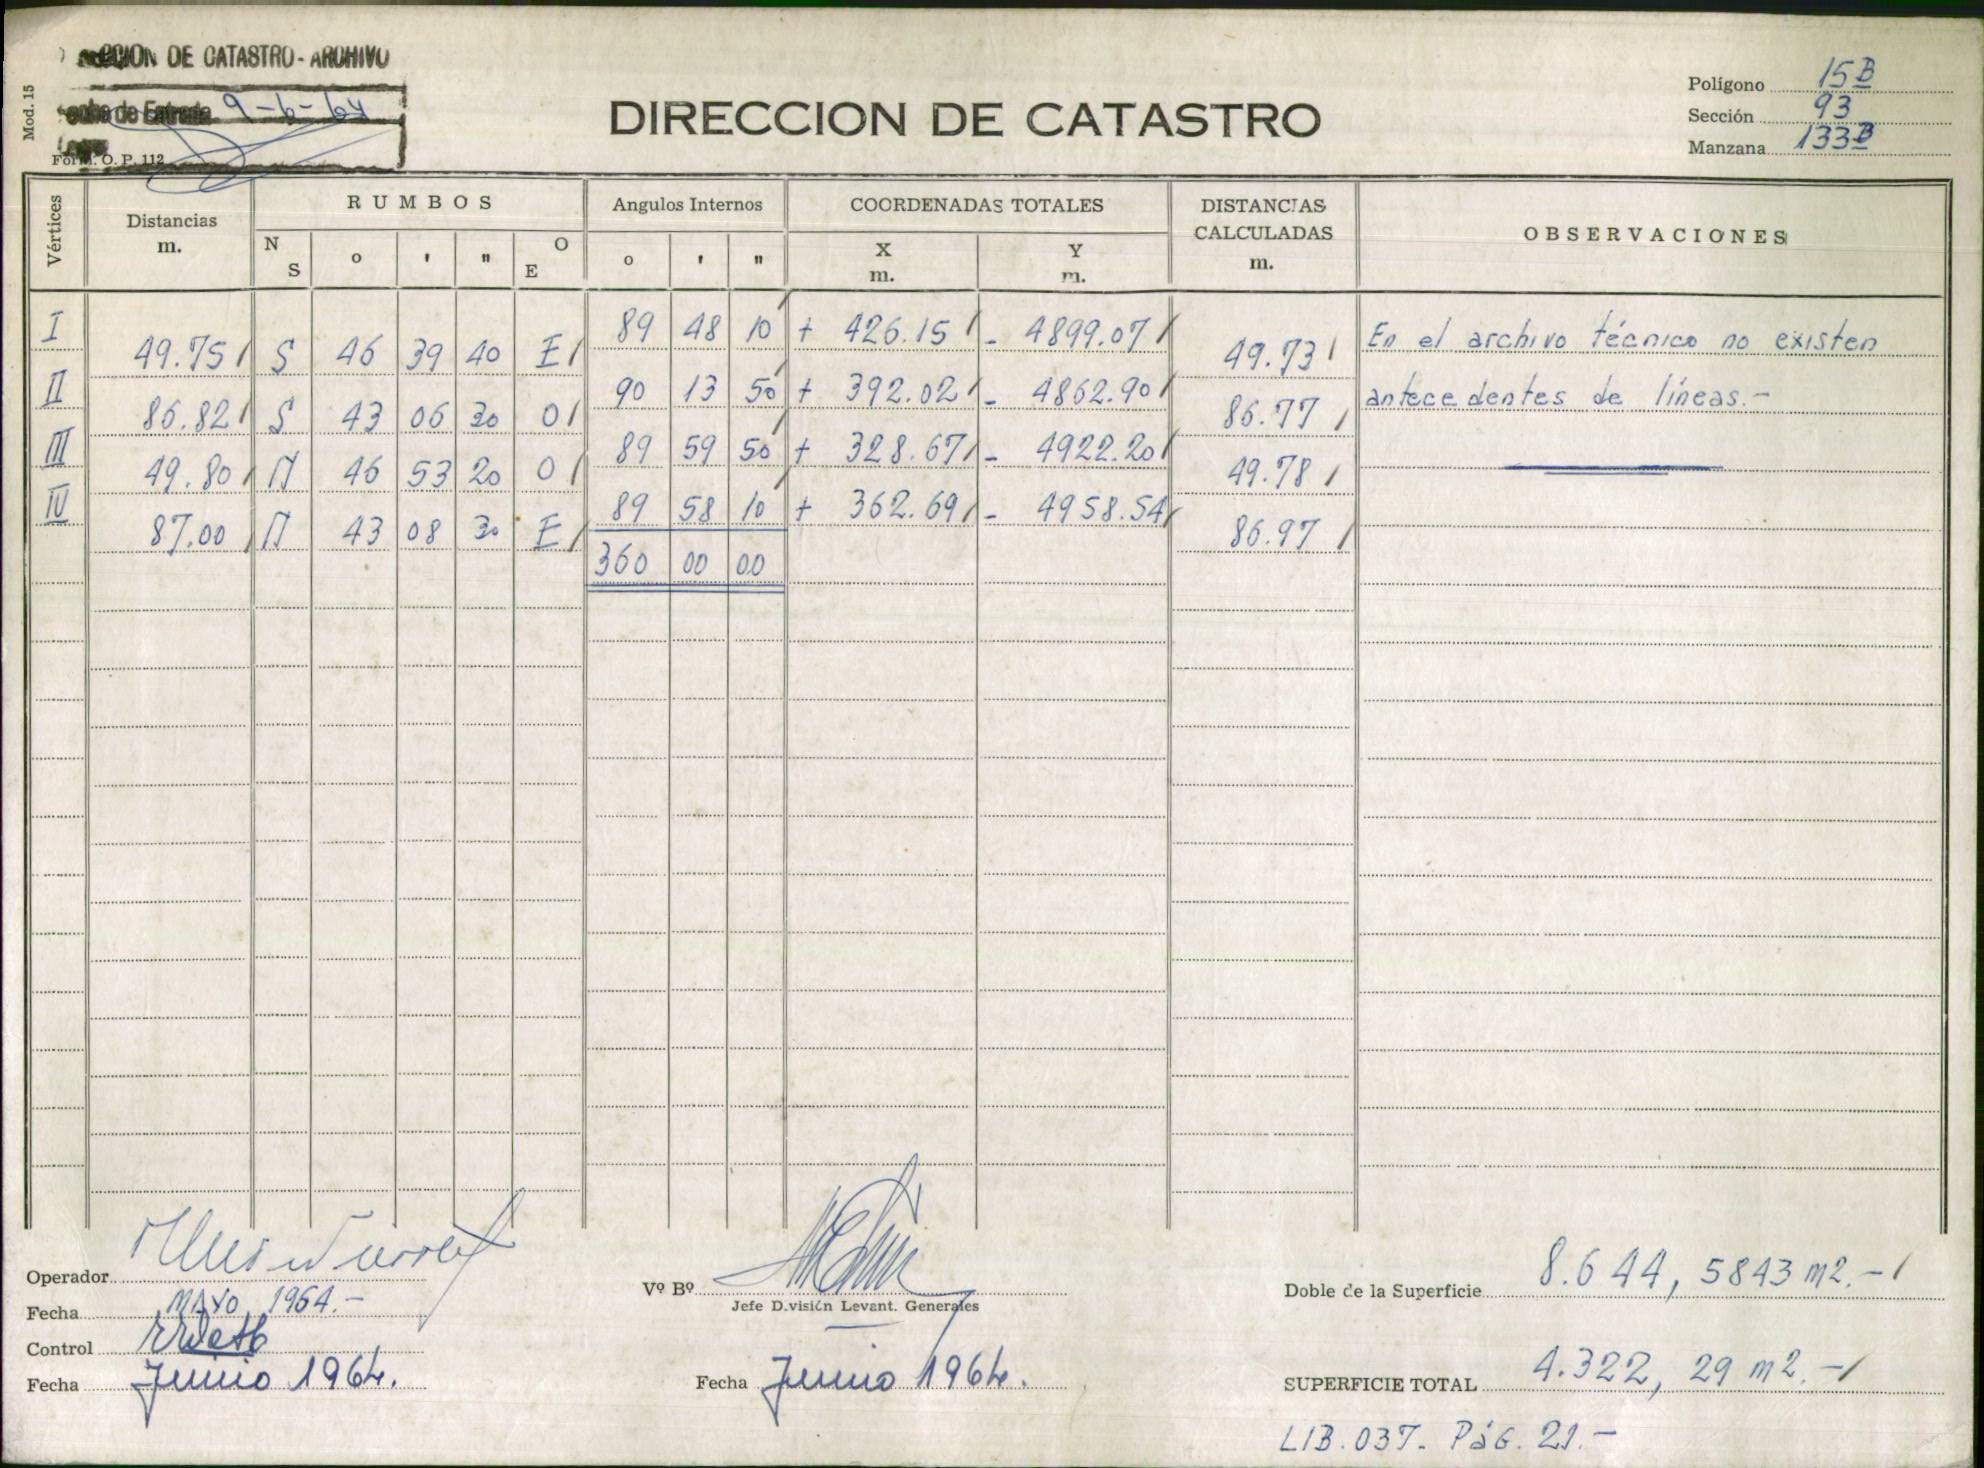 CCION DE CATASTRO - ARCHIVO
Mod. 15
de Entrada 9-6-64
Form. O. P. 112
DIRECCION DE CATASTRO
Polígono 15B
Sección 93
Manzana 133B
Vértices
Distancias
m.
RUMBOS
N
S
o ' "
O
E
Angulos Internos
o ' "
COORDENADAS TOTALES
X
m.
Y
m.
DISTANCIAS
CALCULADAS
m.
OBSERVACIONES
I 89 48 10 + 426.15 - 4899.07
49.75 S 46 39 40 E 49.73
II 90 13 50 + 392.02 - 4862.90
86.82 S 43 06 30 O 86.77
III 89 59 50 + 328.67 - 4922.20
49.80 N 46 53 20 O 49.78
IV 89 58 10 + 362.69 - 4958.54
87.00 N 43 08 30 E 86.97
360 00 00
En el archivo técnico no existen
antecedentes de líneas.-
Operador
Fecha MAYO 1964.-
Control
Fecha Junio 1964.
Vº Bº
Jefe División Levant. Generales
Fecha Junio 1964.
Doble de la Superficie 8.644,5843 m2.-
SUPERFICIE TOTAL 4.322,29 m2.-
LIB. 037. Pág. 21.-